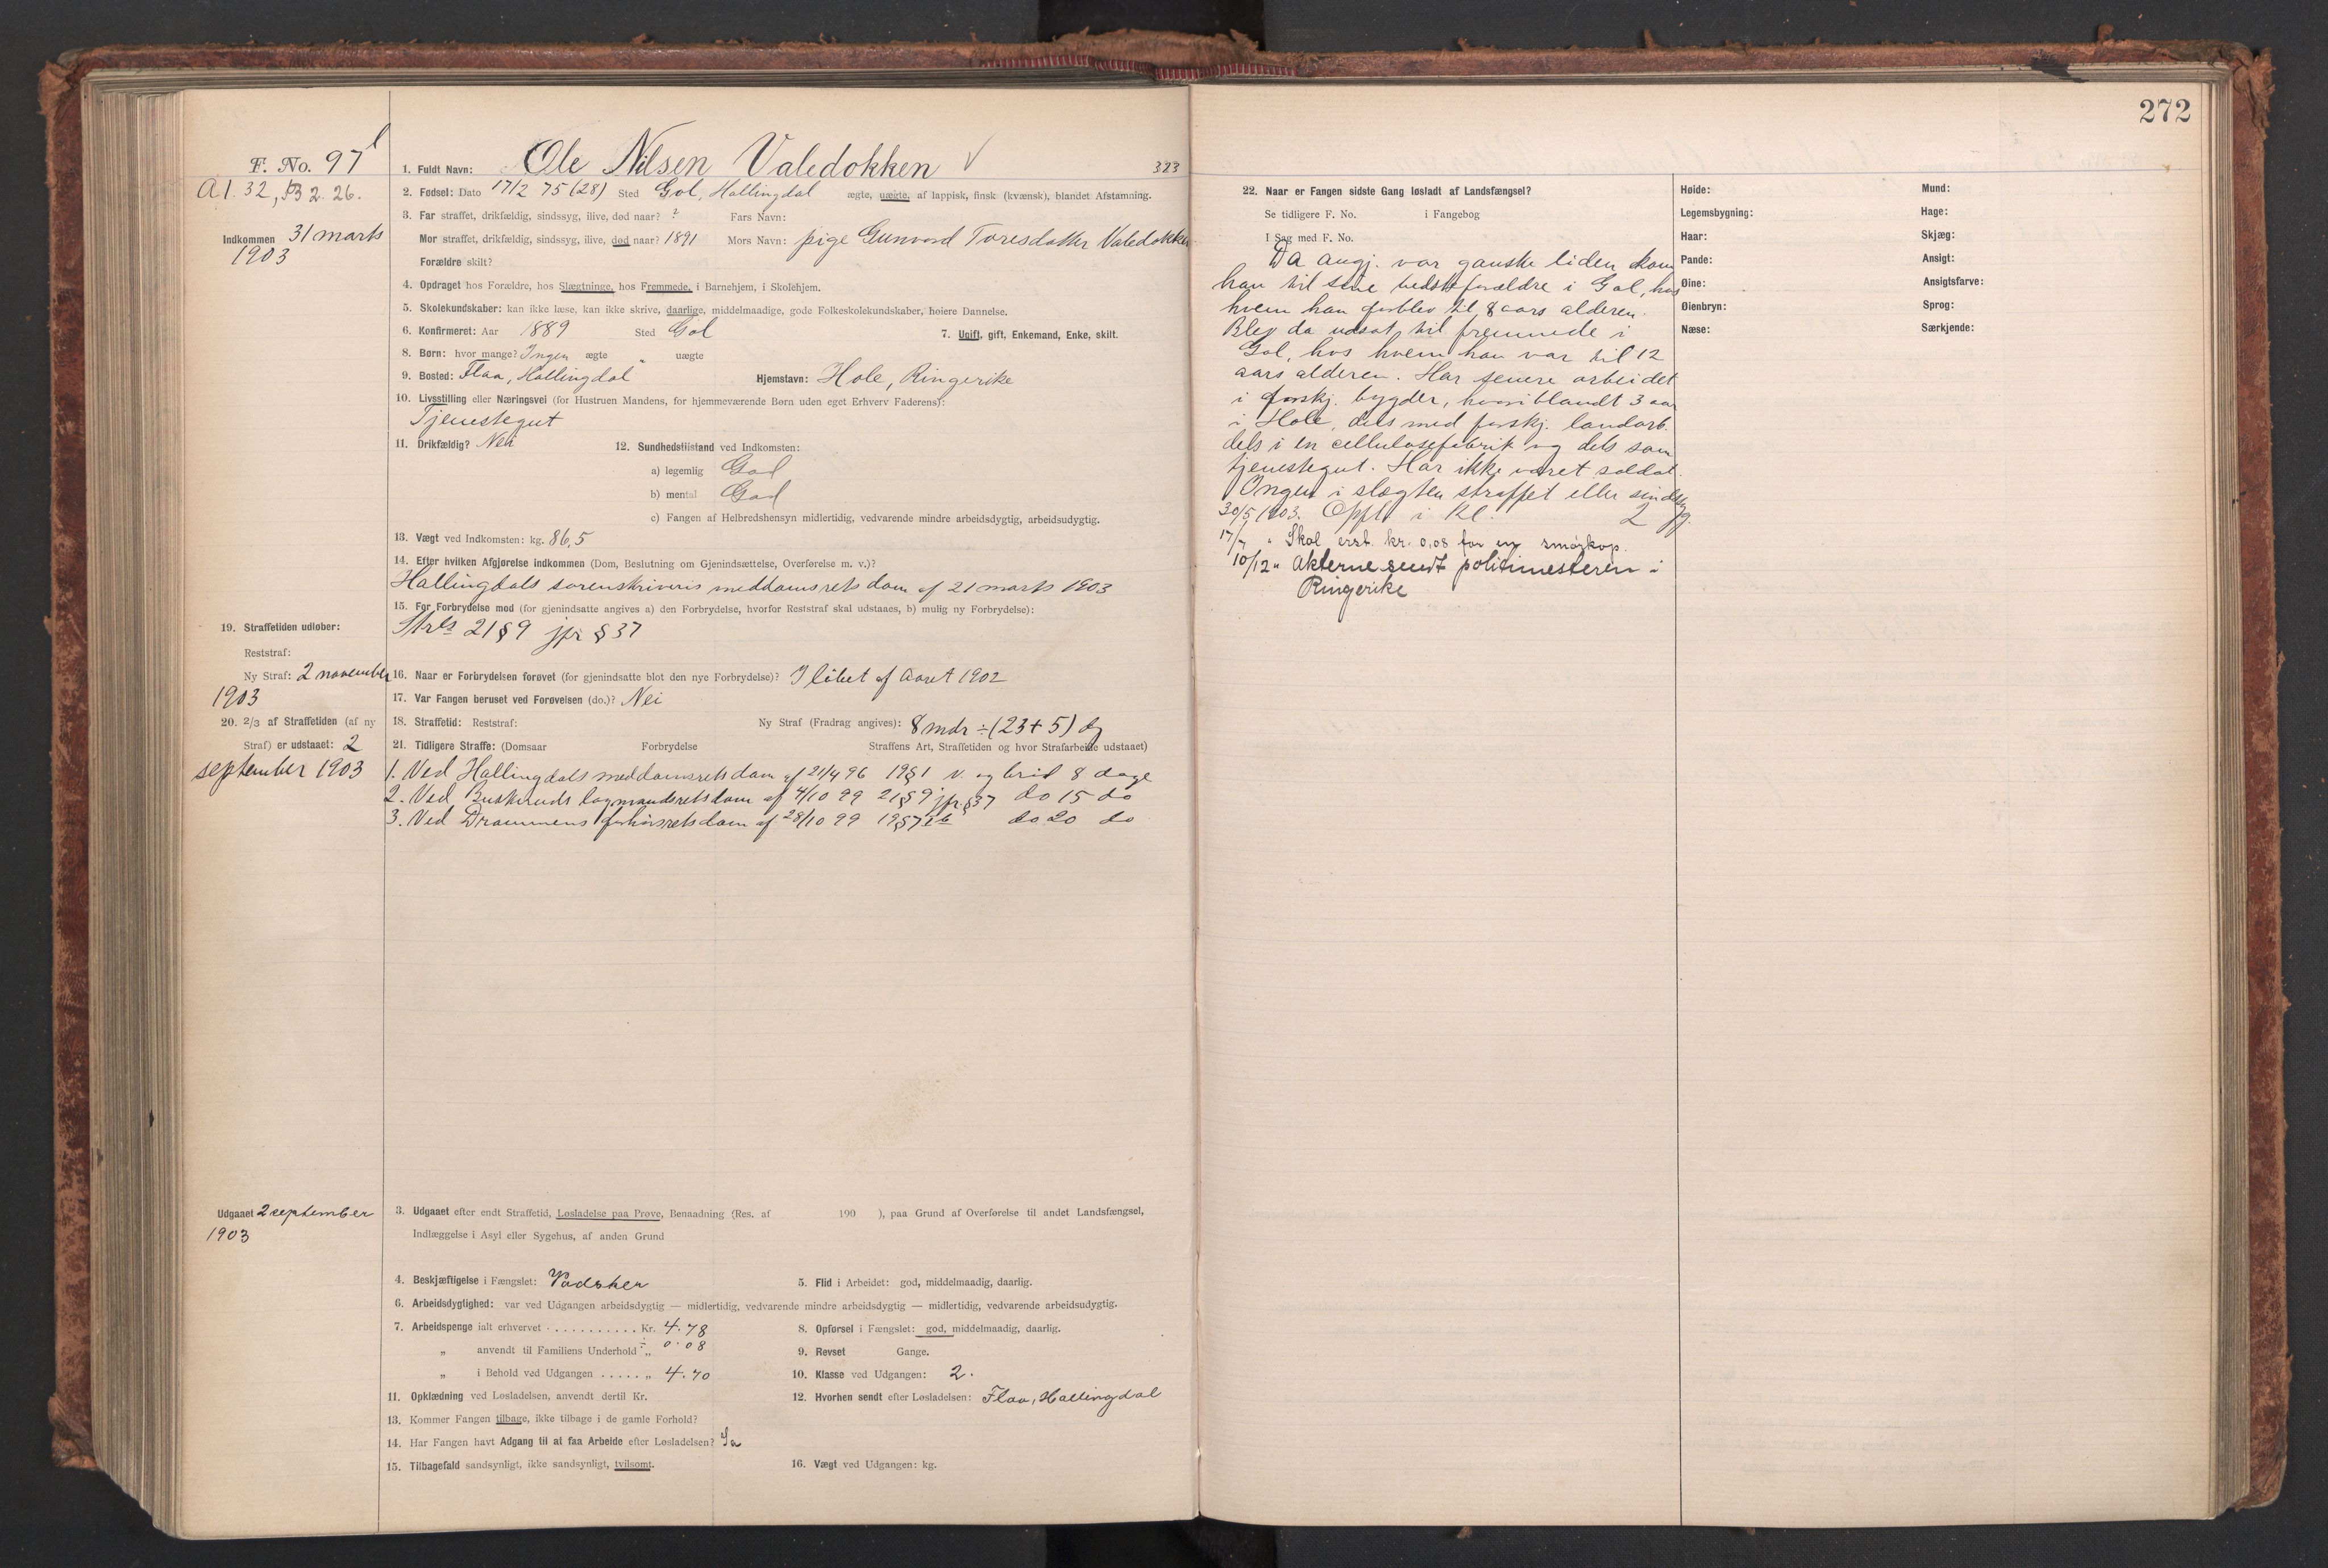 F. No. 97
A 1. 32, B 2. 26.
Indkommen 31 marts
1903
1. Fuldt Navn: Ole Nilsen Valedokken 323
2. Fødsel: Dato 17/2 75 (28) Sted Gol, Hallingdal ægte, uægte, af lappisk, finsk (kvænsk), blandet Afstamning.
3. Far straffet, drikfældig, sindssyg, ilive, død naar? ? Fars Navn:
Mor straffet, drikfældig, sindssyg, ilive, død naar? 1891 Mors Navn: pige Gunvord Toresdatter Valedokken
Forældre skilt?
4. Opdraget hos Forældre, hos Slægtninge, hos Fremmede, i Barnehjem, i Skolehjem.
5. Skolekundskaber: kan ikke læse, kan ikke skrive, daarlige, middelmaadige, gode Folkeskolekundskaber, høiere Dannelse.
6. Konfirmeret: Aar 1889 Sted Gol 7. Ugift, gift, Enkemand, Enke, skilt.
8. Børn: hvor mange? Ingen ægte " uægte
9. Bosted: Flaa, Hallingdal Hjemstavn: Hole, Ringerike
10. Livsstilling eller Næringsvei (for Hustruen Mandens, for hjemmeværende Børn uden eget Erhverv Faderens):
Tjenestegut
11. Drikfældig? Nei 12. Sundhedstilstand ved Indkomsten:
a) legemlig God
b) mental God
c) Fangen af Helbredshensyn midlertidig, vedvarende mindre arbeidsdygtig, arbeidsudygtig.
13. Vægt ved Indkomsten: kg. 86,5
14. Efter hvilken Afgjørelse indkommen (Dom, Beslutning om Gjenindsættelse, Overførelse m. v.)?
Hallingdals sorenskriveris meddomsrets dom af 21 marts 1903
15. For Forbrydelse mod (for gjenindsatte angives a) den Forbrydelse, hvorfor Reststraf skal udstaaes, b) mulig ny Forbrydelse):
Strls 21 § 9 jfr § 37
19. Straffetiden udløber:
Reststraf:
Ny Straf: 2 november
1903
16. Naar er Forbrydelsen forøvet (for gjenindsatte blot den nye Forbrydelse)? I løbet af aaret 1902
17. Var Fangen beruset ved Forøvelsen (do.)? Nei
20. 2/3 af Straffetiden (af ny
Straf) er udstaaet: 2
september 1903
18. Straffetid: Reststraf: Ny Straf (Fradrag angives): 8 mdr ÷ (23 + 5) dg
21. Tidligere Straffe: (Domsaar Forbrydelse Straffens Art, Straffetiden og hvor Strafarbeide udstaaet)
1. Ved Hallingdals meddomsrets dom af 21/4 96 19 § 1 v. og brød 8 dage
2. Ved Buskeruds lagmandsrets dom af 4/10 99 21 § 9 jfr § 37 do 15 do
3. Ved Drammens forhørsrets dom af 28/10 99 19 § 7 do 20 do
Udgaaet 2 september
1903
3. Udgaaet efter endt Straffetid, Løsladelse paa Prøve, Benaadning (Res. af 190 ), paa Grund af Overførelse til andet Landsfængsel,
Indlæggelse i Asyl eller Sygehus, af anden Grund
4. Beskjæftigelse i Fængslet: Vadsker 5. Flid i Arbeidet: god, middelmaadig, daarlig.
6. Arbeidsdygtighed: var ved Udgangen arbeidsdygtig — midlertidig, vedvarende mindre arbeidsdygtig — midlertidig, vedvarende arbeidsudygtig.
7. Arbeidspenge ialt erhvervet . . . . . . . . . . . Kr. 4.78 8. Opførsel i Fængslet: god, middelmaadig, daarlig.
„ anvendt til Familiens Underhold ÷ „ 0.08 9. Revset Gange.
„ i Behold ved Udgangen . . . . . „ 4.70 10. Klasse ved Udgangen: 2.
11. Opklædning ved Løsladelsen, anvendt dertil Kr. 12. Hvorhen sendt efter Løsladelsen: Flaa, Hallingdal
13. Kommer Fangen tilbage, ikke tilbage i de gamle Forhold?
14. Har Fangen havt Adgang til at faa Arbeide efter Løsladelsen? Ja
15. Tilbagefald sandsynligt, ikke sandsynligt, tvilsomt. 16. Vægt ved Udgangen: kg.
272
22. Naar er Fangen sidste Gang løsladt af Landsfængsel?
Se tidligere F. No. i Fangebog
I Sag med F. No.
Da angj. var ganske liden kom
han til sine bedsteforældre i Gol, hos
hvem han forblev til 8 aars alderen.
Blev da udsat til fremmede i
Gol, hos hvem han var til 12
aars alderen. Har senere arbeidet
i forskj. bygder, hvoriblandt 3 aar
i Hole, dels med forskj. landarb.
dels i en cellulosefabrik og dels som
tjenestegut. Har ikke været soldat.
Ingen i slægten straffet eller sindssyg.
30/5 1903. Opfl. i Kl. 2
17/7 " Skal erst. kr. 0,08 for en smørkop.
10/12 " Akterne sendt politimesteren i
Ringerike
Høide: Mund:
Legemsbygning: Hage:
Haar: Skjæg:
Pande: Ansigt:
Øine: Ansigtsfarve:
Øienbryn: Sprog:
Næse: Særkjende: